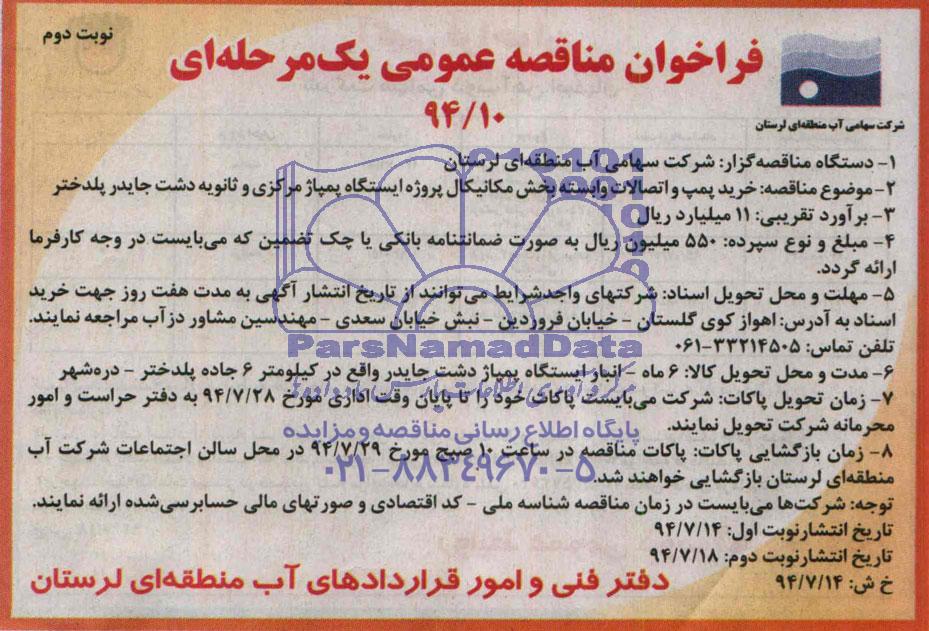 نوبت دوم
فراخوان مناقصه عمومی یک‌مرحله‌ای
۹۴/۱۰
شرکت سهامی آب منطقه‌ای لرستان
۱- دستگاه مناقصه‌گزار: شرکت سهامی آب منطقه‌ای لرستان
۲- موضوع مناقصه: خرید پمپ و اتصالات وابسته بخش مکانیکال پروژه ایستگاه پمپاژ مرکزی و ثانویه دشت جایدر پلدختر
۳- برآورد تقریبی: ۱۱ میلیارد ریال
۴- مبلغ و نوع سپرده: ۵۵۰ میلیون ریال به صورت ضمانتنامه بانکی یا چک تضمین که می‌بایست در وجه کارفرما
ارائه گردد.
۵- مهلت و محل تحویل اسناد: شرکتهای واجدشرایط می‌توانند از تاریخ انتشار آگهی به مدت هفت روز جهت خرید
اسناد به آدرس: اهواز کوی گلستان – خیابان فروردین – نبش خیابان سعدی – مهندسین مشاور دزآب مراجعه نمایند.
تلفن تماس: ۳۳۲۱۴۵۰۵-۰۶۱
ParsNamadData
۶- مدت و محل تحویل کالا: ۶ ماه – انبار ایستگاه پمپاژ دشت جایدر واقع در کیلومتر ۶ جاده پلدختر – دره‌شهر
۷- زمان تحویل پاکات: شرکت می‌بایست پاکات خود را تا پایان وقت اداری مورخ ۹۴/۷/۲۸ به دفتر حراست و امور
محرمانه شرکت تحویل نمایند.
پایگاه اطلاع رسانی مناقصه و مزایده
۸- زمان بازگشایی پاکات: پاکات مناقصه در ساعت ۱۰ صبح مورخ ۹۴/۷/۲۹ در محل سالن اجتماعات شرکت آب
۰۲۱-۸۸۳۴۹۶۷۰-۵
منطقه‌ای لرستان بازگشایی خواهند شد.
توجه: شرکت‌ها می‌بایست در زمان مناقصه شناسه ملی – کد اقتصادی و صورتهای مالی حسابرسی‌شده ارائه نمایند.
تاریخ انتشارنوبت اول: ۹۴/۷/۱۴
تاریخ انتشارنوبت دوم: ۹۴/۷/۱۸
خ ش: ۹۴/۷/۱۴
دفتر فنی و امور قراردادهای آب منطقه‌ای لرستان